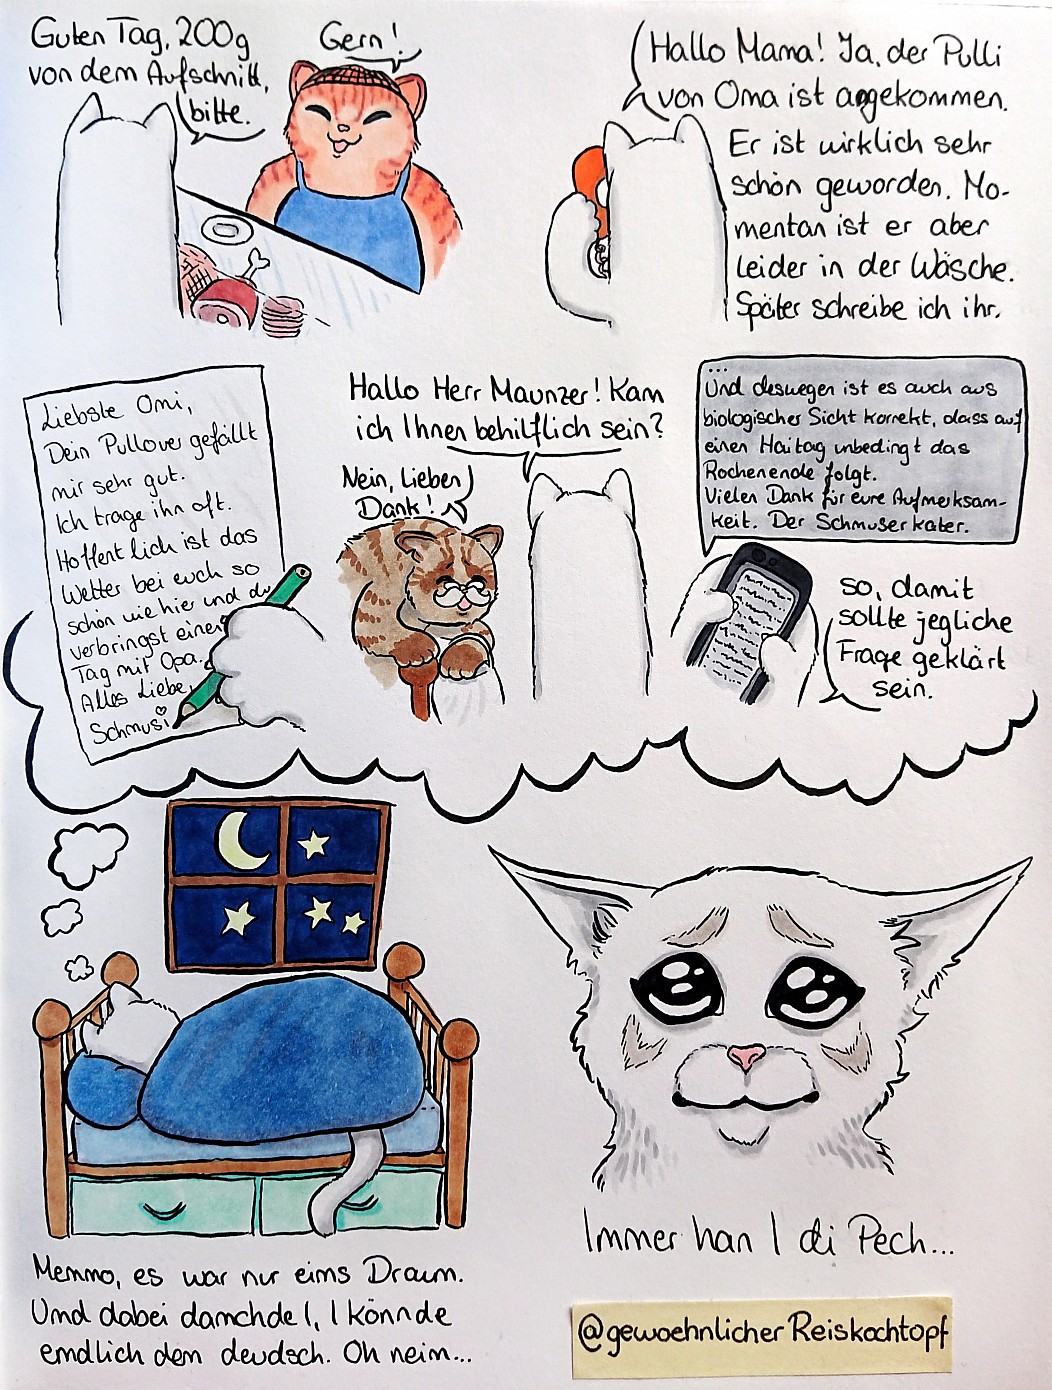 Guten Tag, 200g
von dem Aufschnitt,
bitte.
Gern!
Hallo Mama! Ja, der Pulli
von Oma ist angekommen.
Er ist wirklich sehr
schön geworden. Mo-
mentan ist er aber
leider in der Wäsche.
Später schreibe ich ihr.
Liebste Omi,
Dein Pullover gefällt
mir sehr gut.
Ich trage ihn oft.
Hoffentlich ist das
Wetter bei euch so
schön wie hier und du
verbringst einen
Tag mit Opa.
Alles Liebe,
Schmusi
Hallo Herr Maunzer! Kann
ich Ihnen behilflich sein?
Nein, Lieben
Dank!
...
Und deswegen ist es auch aus
biologischer Sicht korrekt, dass auf
einen Haitag unbedingt das
Rochenende folgt.
Vielen Dank für eure Aufmerksam-
keit. Der Schmuserkater.
so, damit
sollte jegliche
Frage geklärt
sein.
Memmo, es war nur eims Draum.
Umd dabei damchde I, I könnde
emdlich dem deudsch. Oh neim...
Immer han I di Pech...
@gewoehnlicherReiskochtopf